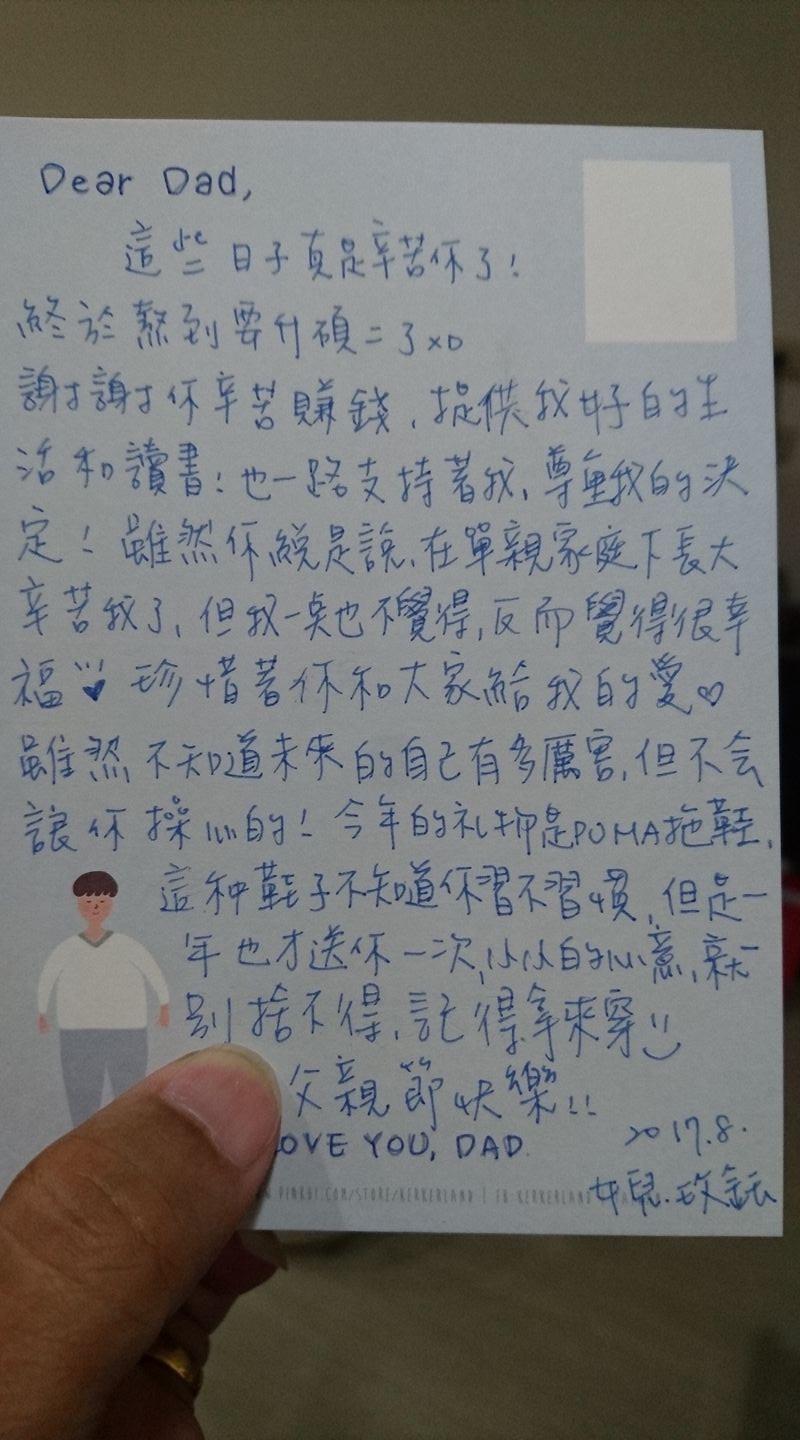 Dear Dad,
這些日子真是辛苦你了!
終於熬到要升碩二了XD
謝謝你辛苦賺錢,提供我好的生
活和讀書!也一路支持著我,尊重我的決
定!雖然你總是說,在單親家庭下長大
辛苦我了,但我一點也不覺得,反而覺得很幸
福♥珍惜著你和大家給我的愛♡
雖然不知道未來的自己有多厲害,但不会
讓你操心的!今年的礼物是PUMA拖鞋,
這种鞋子不知道你習不習慣,但是一
年也才送你一次,小小的心意,就
別捨不得,記得拿來穿!!
父親節快樂!!
OVE YOU, DAD.
2017.8.
.PINKOI.COM/STORE/KERKERLAND | FB:KERKERLAND
女兒.玫